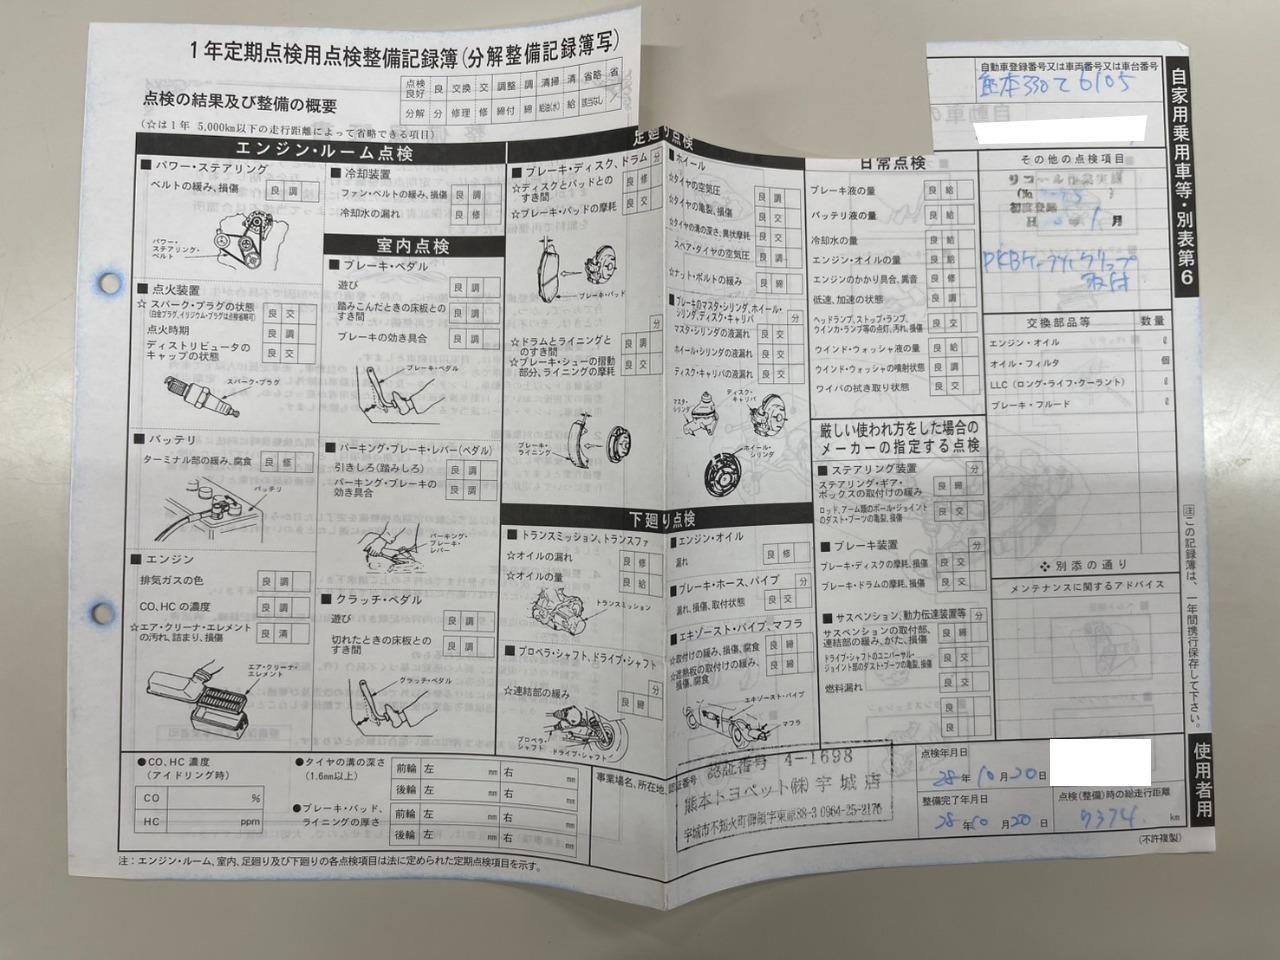 1年定期点検用点検整備記録簿(分解整備記録簿写)
点検の結果及び整備の概要
(☆は1年 5,000km以下の走行距離によって省略できる項目)
点検良好 良 交換 交 調整 調 清掃 清 省略 省
分解 分 修理 修 締付 締 給油(水) 給 該当なし ／
エンジン・ルーム点検
■パワー・ステアリング
ベルトの緩み、損傷 良 調
パワー・ステアリング・ベルト
■点火装置
☆スパーク・プラグの状態 良 交
(白金プラグ、イリジウム・プラグは点検省略可)
点火時期 良 調
ディストリビュータのキャップの状態 良 交
スパーク・プラグ
■バッテリ
ターミナル部の緩み、腐食 良 修
バッテリ
■エンジン
排気ガスの色 良 調
CO、HCの濃度 良 調
☆エア・クリーナ・エレメントの汚れ、詰まり、損傷 良 清
エア・クリーナ・エレメント
■冷却装置
ファン・ベルトの緩み、損傷 良 調
冷却水の漏れ 良 修
室内点検
■ブレーキ・ペダル
遊び 良 調
踏みこんだときの床板とのすき間 良 調
ブレーキの効き具合 良 調
ブレーキ・ペダル
■パーキング・ブレーキ・レバー(ペダル)
引きしろ(踏みしろ) 良 調
パーキング・ブレーキの効き具合 良 調
パーキング・ブレーキ・レバー
■クラッチ・ペダル
遊び 良 調
切れたときの床板とのすき間 良 調
クラッチ・ペダル
足廻り点検
■ブレーキ・ディスク、ドラム 分
☆ディスクとパッドとのすき間 良 修
☆ブレーキ・パッドの摩耗 良 交
ブレーキ・パッド
分
☆ドラムとライニングとのすき間 良 調
☆ブレーキ・シューの摺動部分、ライニングの摩耗 良 交
ブレーキ・ライニング
■ホイール
☆タイヤの空気圧 良 調
☆タイヤの亀裂、損傷 良 交
☆タイヤの溝の深さ、異状摩耗 良 交
スペア・タイヤの空気圧 良 調
☆ナット・ボルトの緩み 良 締
■ブレーキのマスタ・シリンダ、ホイール・シリンダ、ディスク・キャリパ 分
マスタ・シリンダの液漏れ 良 交
ホイール・シリンダの液漏れ 良 交
ディスク・キャリパの液漏れ 良 交
マスタ・シリンダ
ディスク・キャリパ
ホイール・シリンダ
下廻り点検
■トランスミッション、トランスファ
☆オイルの漏れ 良 修
☆オイルの量 良 給
トランスミッション
■プロペラ・シャフト、ドライブ・シャフト
分
☆連結部の緩み 良 締
プロペラ・シャフト
ドライブ・シャフト
■エンジン・オイル
漏れ 良 修
■ブレーキ・ホース、パイプ 分
漏れ、損傷、取付状態 良 交
■エキゾースト・パイプ、マフラ
☆取付けの緩み、損傷、腐食 良 締
☆遮熱板の取付けの緩み、損傷、腐食 良 締
エキゾースト・パイプ
マフラ
日常点検
ブレーキ液の量 良 給
バッテリ液の量 良 給
冷却水の量 良 給
エンジン・オイルの量 良 給
エンジンのかかり具合、異音 良 修
低速、加速の状態 良 調
ヘッドランプ、ストップ・ランプ、ウインカ・ランプ等の点灯、汚れ、損傷 良 交
ウインド・ウォッシャ液の量 良 給
ウインド・ウォッシャの噴射状態 良 調
ワイパの拭き取り状態 良 交
厳しい使われ方をした場合のメーカーの指定する点検
■ステアリング装置 分
ステアリング・ギア・ボックスの取付けの緩み 良 締
ロッド、アーム類のボール・ジョイントのダスト・ブーツの亀裂、損傷 良 交
■ブレーキ装置 分
ブレーキ・ディスクの摩耗、損傷 良 交
ブレーキ・ドラムの摩耗、損傷 良 交
■サスペンション、動力伝達装置等 分
サスペンションの取付部、連結部の緩み、がた、損傷 良 締
ドライブ・シャフトのユニバーサル・ジョイント部のダスト・ブーツの亀裂、損傷 良 交
燃料漏れ 良 交
良
良
自動車登録番号又は車両番号又は車台番号
熊本330て6105
その他の点検項目
リコール作業実績
(No. )
初度登録
H 年 月
PKBケーブルクリップ
取付
交換部品等 数量
エンジン・オイル ℓ
オイル・フィルタ 個
LLC(ロング・ライフ・クーラント) ℓ
ブレーキ・フルード ℓ
❖別添の通り
メンテナンスに関するアドバイス
自家用乗用車等・別表第6
注 この記録簿は、一年間携行保存して下さい。
使用者用
●CO、HC濃度
(アイドリング時)
CO %
HC ppm
●タイヤの溝の深さ
(1.6mm以上)
前輪 左 mm 右 mm
後輪 左 mm 右 mm
●ブレーキ・パッド、ライニングの厚さ
前輪 左 mm 右 mm
後輪 左 mm 右 mm
事業場名、所在地、認証番号
認証番号 4-1698
熊本トヨペット(株)宇城店
宇城市不知火町御領字東原88-3 0964-25-2170
点検年月日
28年10月20日
整備完了年月日
28年10月20日
点検(整備)時の総走行距離
9374 km
(不許複製)
注:エンジン・ルーム、室内、足廻り及び下廻りの各点検項目は法に定められた定期点検項目を示す。